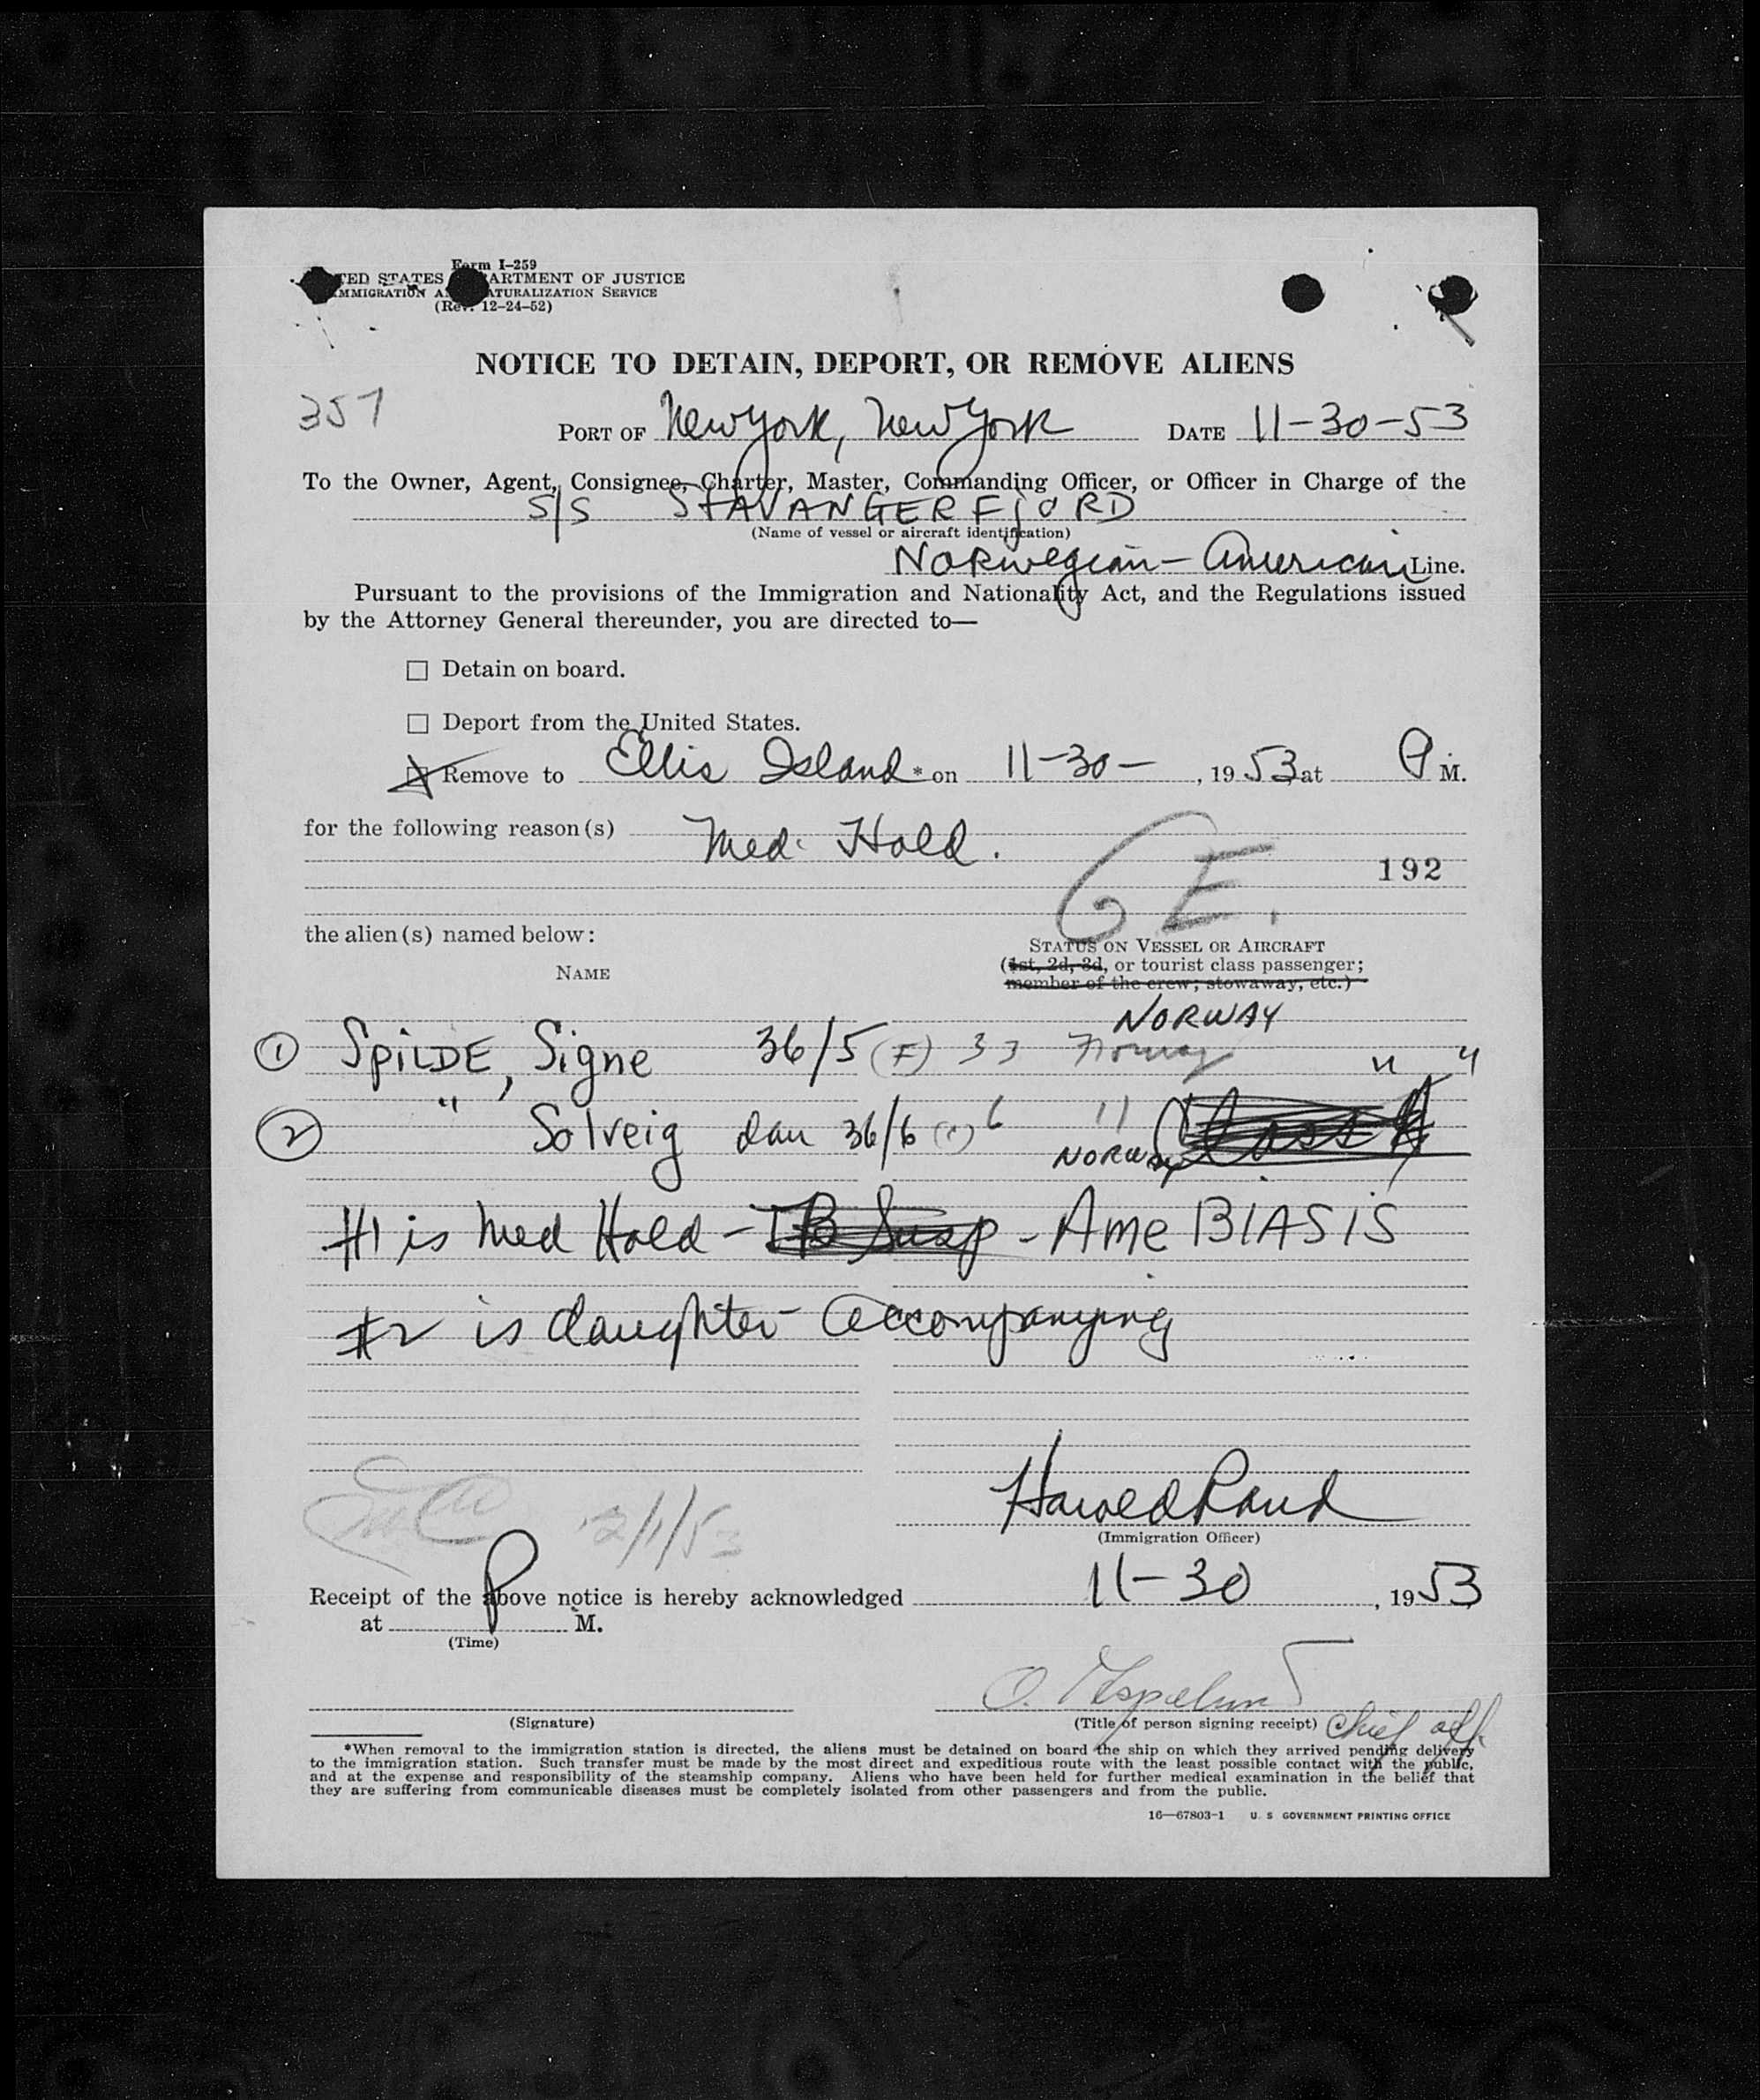 Form I-259
UNITED STATES DEPARTMENT OF JUSTICE
IMMIGRATION AND NATURALIZATION SERVICE
(Rev. 12-24-52)
NOTICE TO DETAIN, DEPORT, OR REMOVE ALIENS
357
PORT OF New York, New York DATE 11-30-53
To the Owner, Agent, Consignee, Charter, Master, Commanding Officer, or Officer in Charge of the
S/S STAVANGERFjORD
(Name of vessel or aircraft identification)
Norwegian-American Line.
Pursuant to the provisions of the Immigration and Nationality Act, and the Regulations issued
by the Attorney General thereunder, you are directed to—
☐ Detain on board.
☐ Deport from the United States.
☒ Remove to Ellis Island * on 11-30-, 1953, at P M.
for the following reason(s) Med. Hold.
GE.
192
the alien(s) named below:
STATUS ON VESSEL OR AIRCRAFT
NAME
(1st, 2d, 3d, or tourist class passenger;
member of the crew; stowaway, etc.)
NORWAY
① SPiLDE, Signe 36/5 (F) 33 Norway " "
② " Solveig dau 36/6 6 11
NORWAY
#1 is Med Hold - TB Susp - AmeBIASiS
#2 is daughter - accompanying
Harold Rand
(Immigration Officer)
12/1/53
Receipt of the above notice is hereby acknowledged 11-30, 1953
at P M.
(Time)
O.
(Signature)
(Title of person signing receipt) Chief off.
*When removal to the immigration station is directed, the aliens must be detained on board the ship on which they arrived pending delivery
to the immigration station. Such transfer must be made by the most direct and expeditious route with the least possible contact with the public,
and at the expense and responsibility of the steamship company. Aliens who have been held for further medical examination in the belief that
they are suffering from communicable diseases must be completely isolated from other passengers and from the public.
16—67803-1 U. S GOVERNMENT PRINTING OFFICE